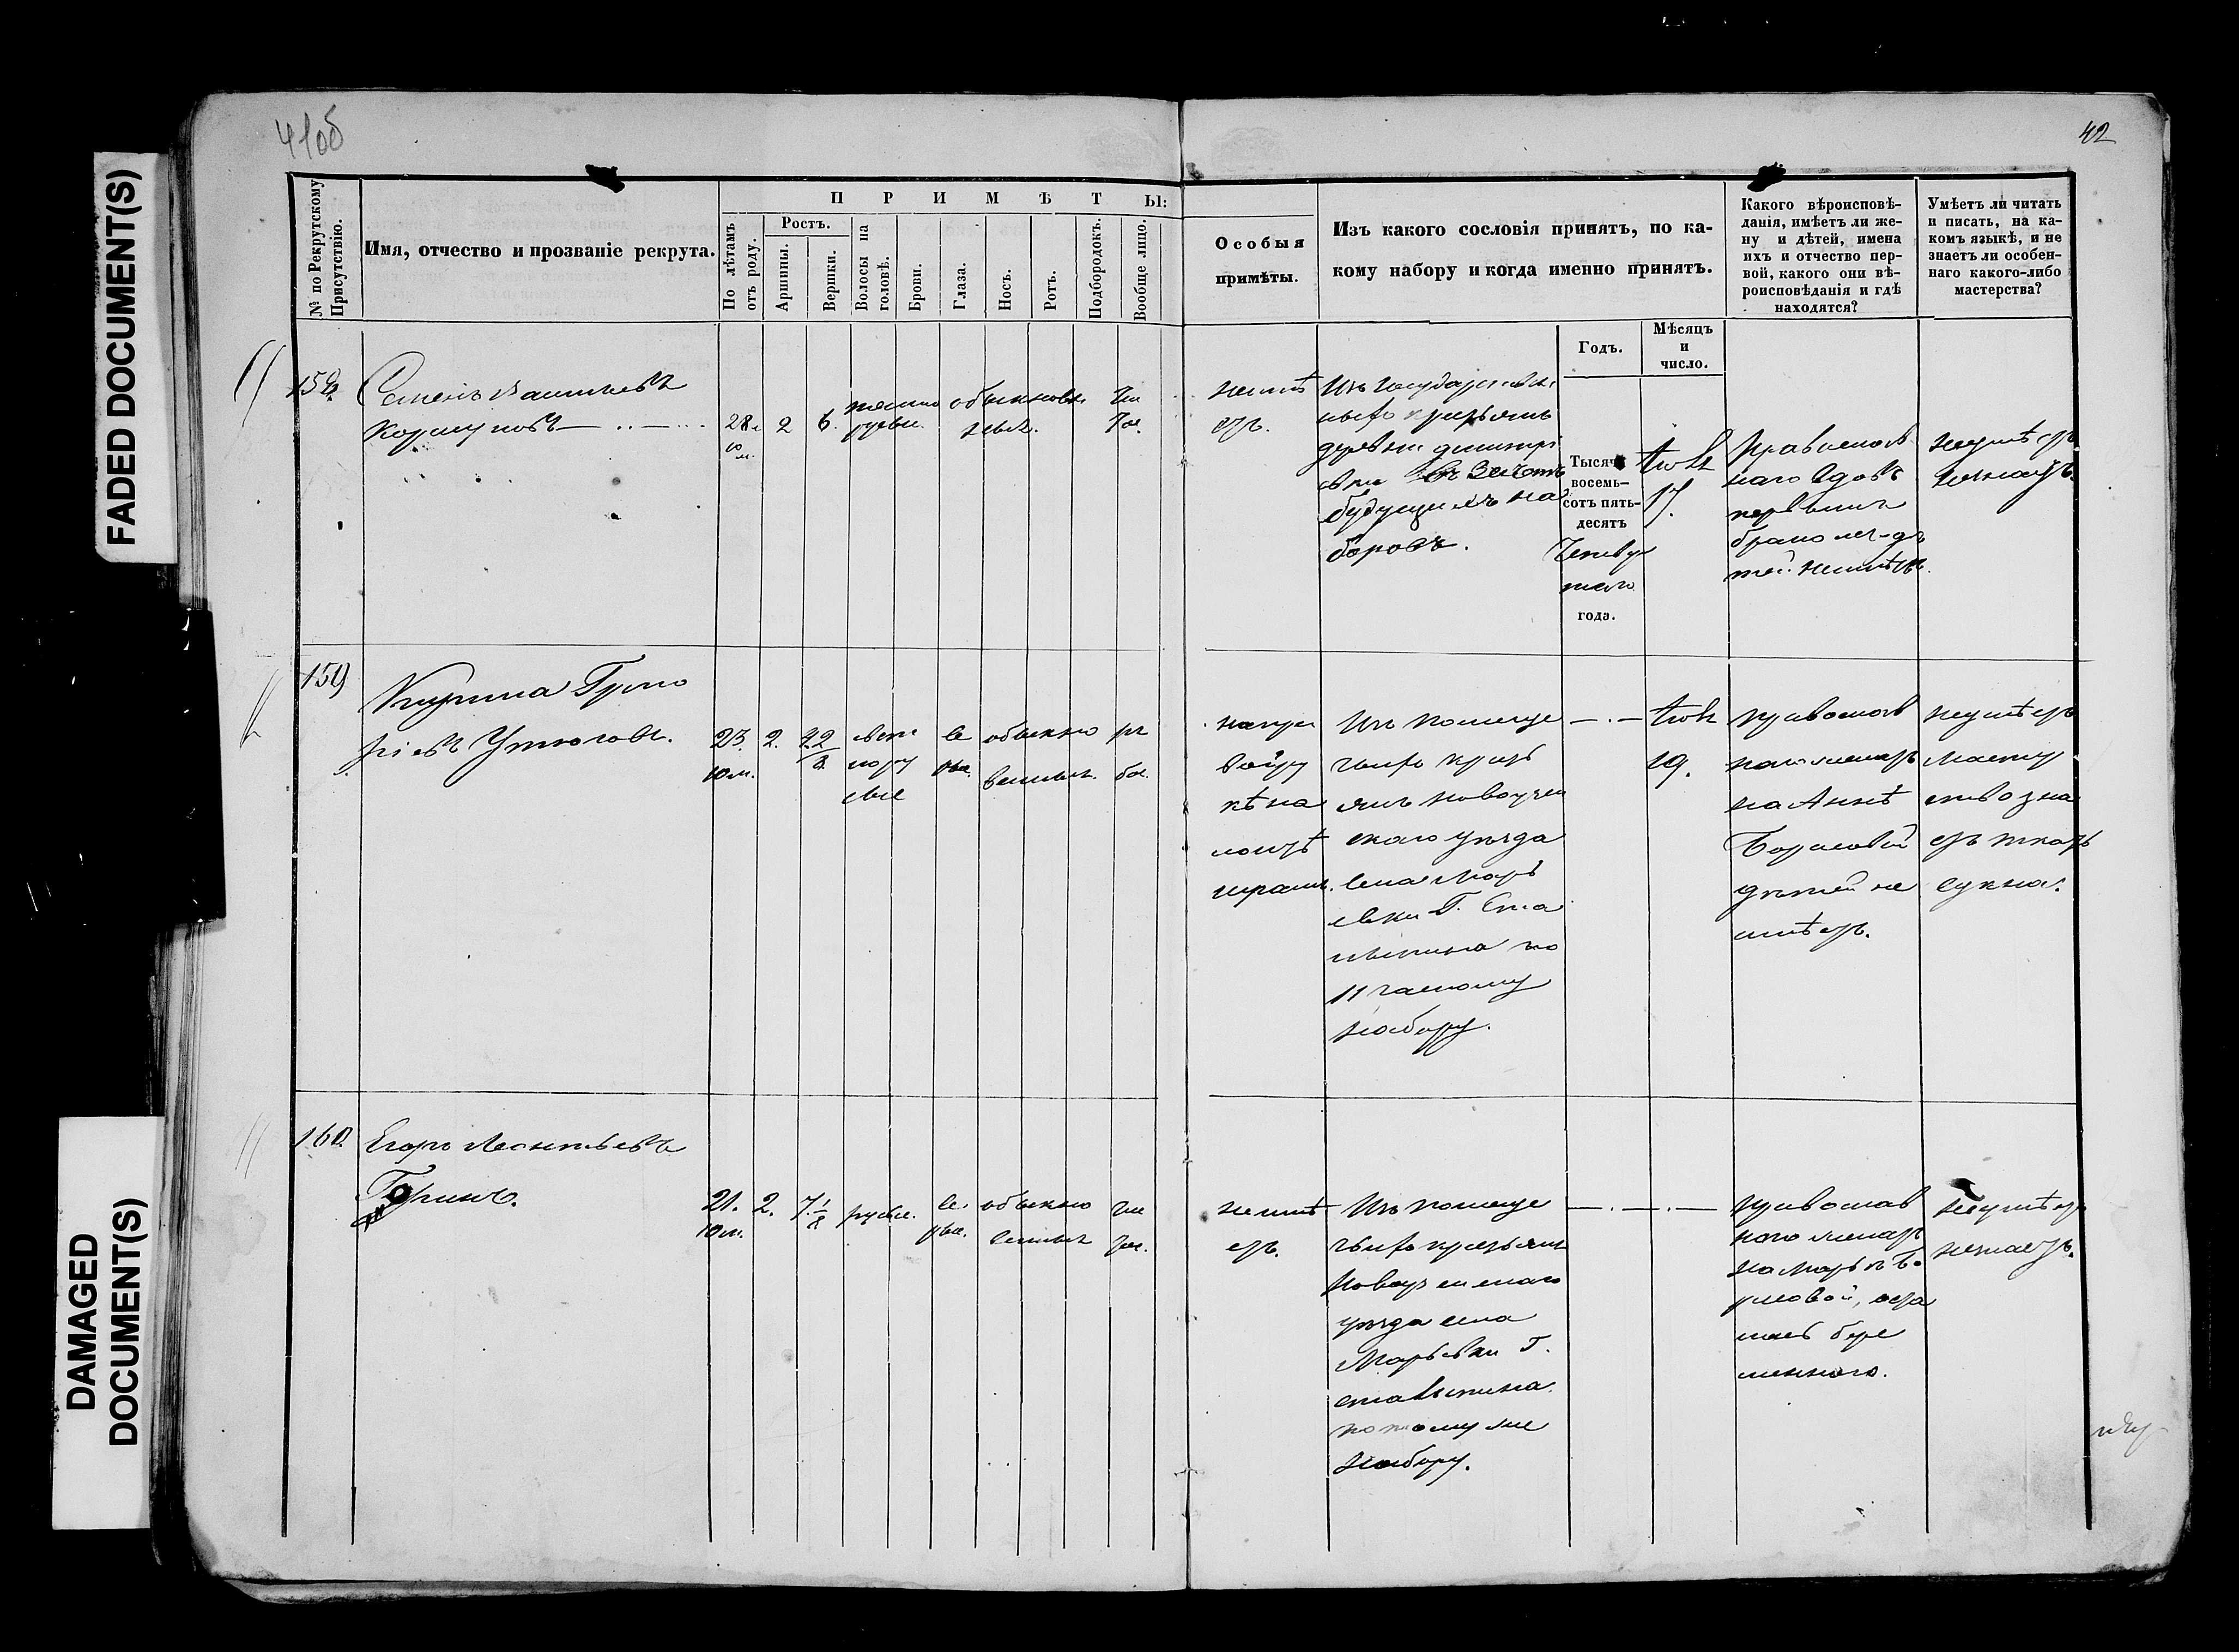 FADED DOCUMENT(S)
DAMAGED
DOCUMENT(S)
41об
42
№ по Рекрутскому
Присутствію.
Имя, отчество и прозваніе рекрута.
П Р И М Ѣ Т Ы:
По лѣтамъ
отъ роду.
Ростъ.
Аршины.
Вершки.
Волосы на
головѣ.
Брови.
Глаза.
Носъ.
Ротъ.
Подбородокъ.
Вообще лицо.
Особыя
примѣты.
Изъ какого сословія принятъ, по ка-
кому набору и когда именно принятъ.
Годъ.
Мѣсяцъ
и
число.
Какого вѣроисповѣ-
данія, имѣетъ ли же-
ну и дѣтей, имена
ихъ и отчество пер-
вой, какого они вѣ-
роисповѣданія и гдѣ
находятся?
Умѣетъ ли читать
и писать, на ка-
комъ языкѣ, и не
знаетъ ли особен-
наго какого-либо
мастерства?
158.
Семенъ Васильевъ
Коршуновъ
28.
2
6.
темно
русые.
обыкновен
ные.
чис
тое.
неимѣ
етъ.
Изъ государствен
ныхъ крестьянъ
деревни Дмитрі
евки въ Зачетъ
будущихъ на
боровъ.
Тысяча
восемь-
сотъ пять-
десятъ
Четвер
таго
года.
17.
Православ
наго вдовъ
первымъ
бракомъ дѣ
тей неимѣетъ.
неумѣетъ
незнаетъ.
159
Григо
рьевъ Утюговъ.
23.
10 м.
2.
2/8
свет
лору
сые
се
рые.
обыкно
венные.
ря
бое.
на
Изъ помещи
чьихъ кресть
янъ Новоузен
скаго уѣзда
села Марь
евки Г. Ста
по
11 частному
набору.
Іюля
19.
православ
наго женатъ
на Аннѣ
Борисовой
дѣтей не
имѣетъ.
неумѣетъ
мастер
ство зна
етъ ткать
сукна.
160.
Егоръ Леонтьевъ
Горинъ.
21.
10 м.
2.
7 1/8
русые.
се
рые.
обыкно
венные
чис
тое.
неимѣ
етъ.
Изъ помещи
чьихъ крестьянъ
Новоузенскаго
уѣзда села
Марьевки Г.
по тому же
набору.
православ
наго женатъ
на Марьѣ
оста
лась бере
менною.
неумѣетъ
незнаетъ.